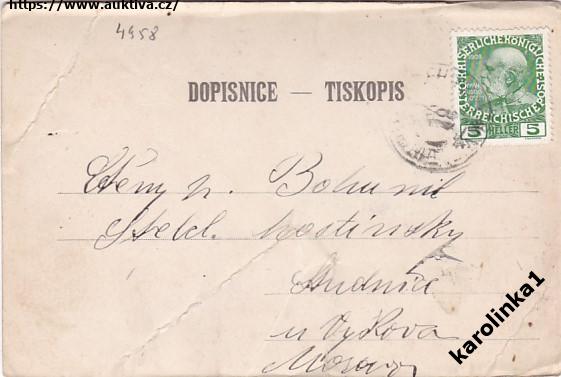 https://www.auktiva.cz/
4958
DOPISNICE — TISKOPIS
KAISERLICHE KÖNIGLICHE
ÖSTERREICHISCHE POST
5 HELLER 5
Ctěný p. Bohumil
Mostinsky
Studnice
u Vyškova
Morava
karolinka1